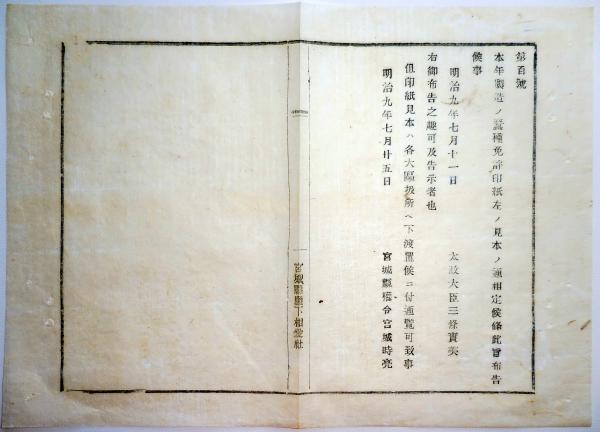 第百號
本年製造ノ蠶種免許印紙左ノ見本ノ通相定候條此旨布告
候事
明治九年七月十一日　太政大臣三條實美
右御布告之趣可及告示者也
但印紙見本ハ各大區扱所ヘ下渡置候ニ付通覽可致事
明治九年七月廿五日　宮城縣權令宮城時亮
宮城縣廳下相愛社